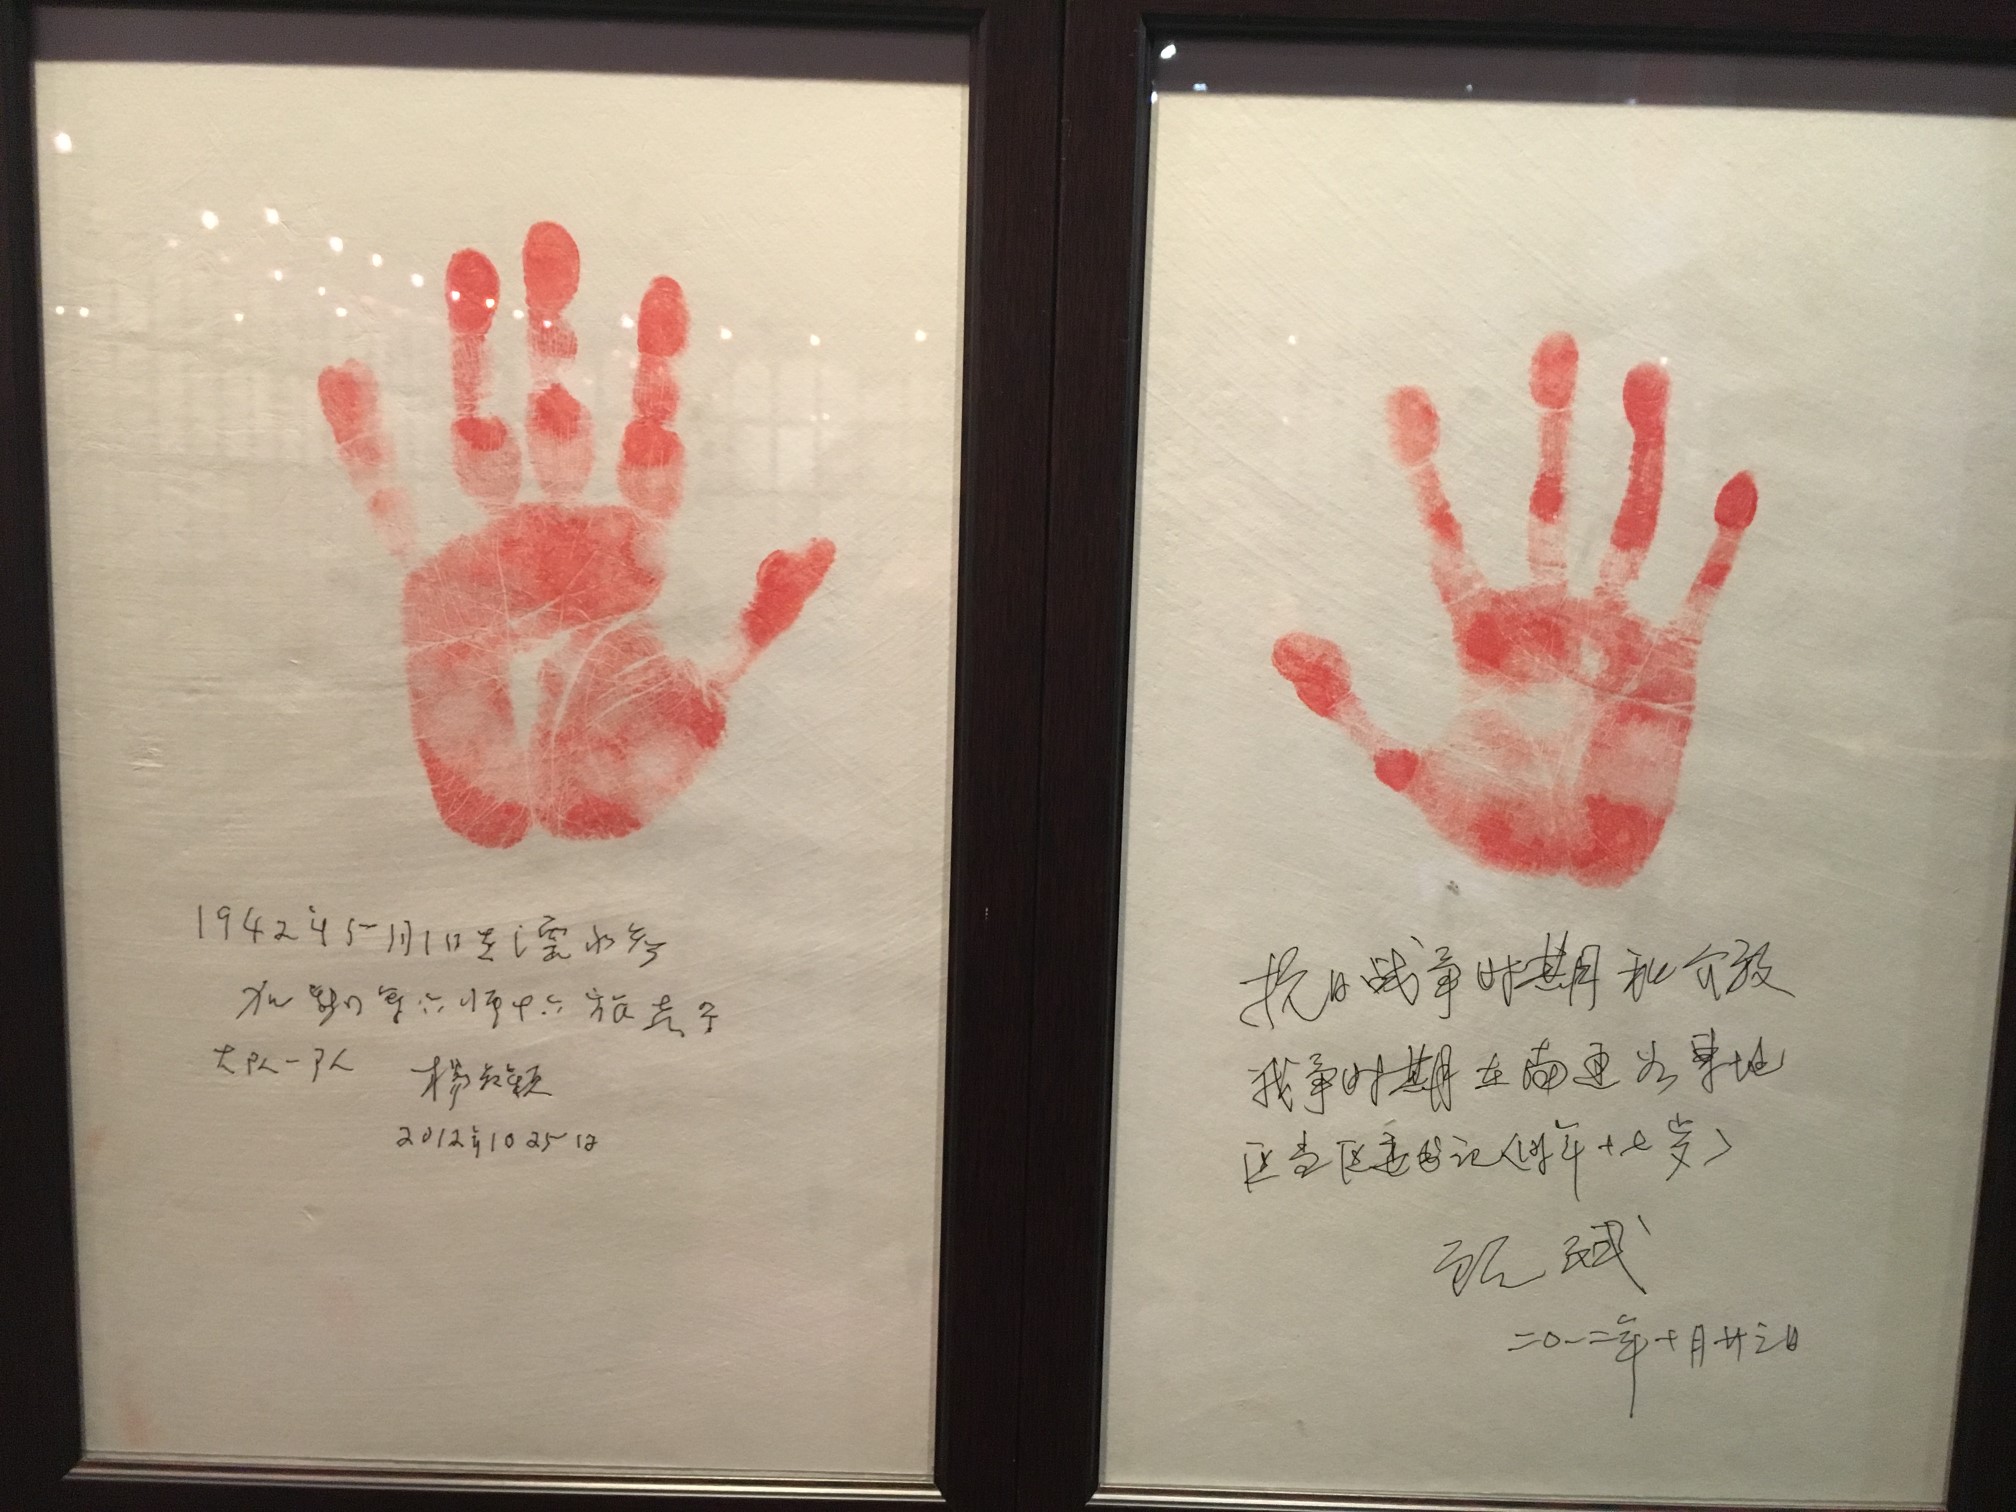 1942年5月1日在溧水参
加新四军六师十六旅
大队一队
楊
2012年10 25日
抗日战争时期和介放
战争时期在南通
区当区委书记(时年十七岁)
斌
二〇一二年十月廿三日